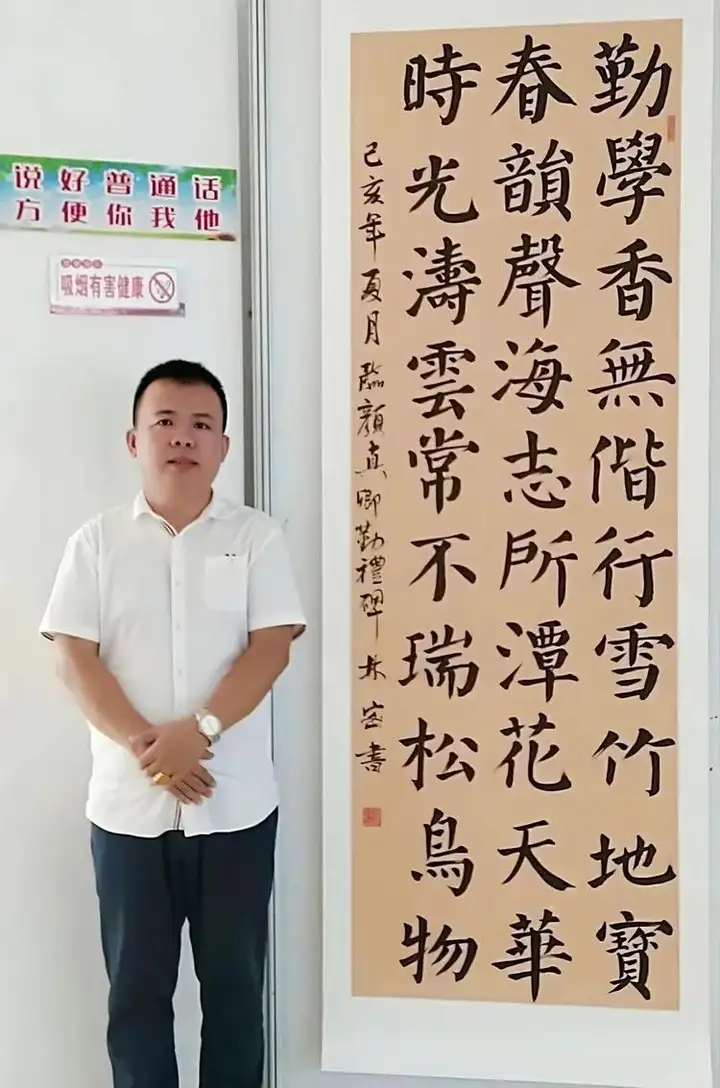 说好普通话
方便你我他
吸烟有害健康
勤學香無偕行雪竹地寶
春韻聲海志所潭花天華
時光濤雲常不瑞松鳥物
己亥年夏月臨顏真卿勤禮碑 林書